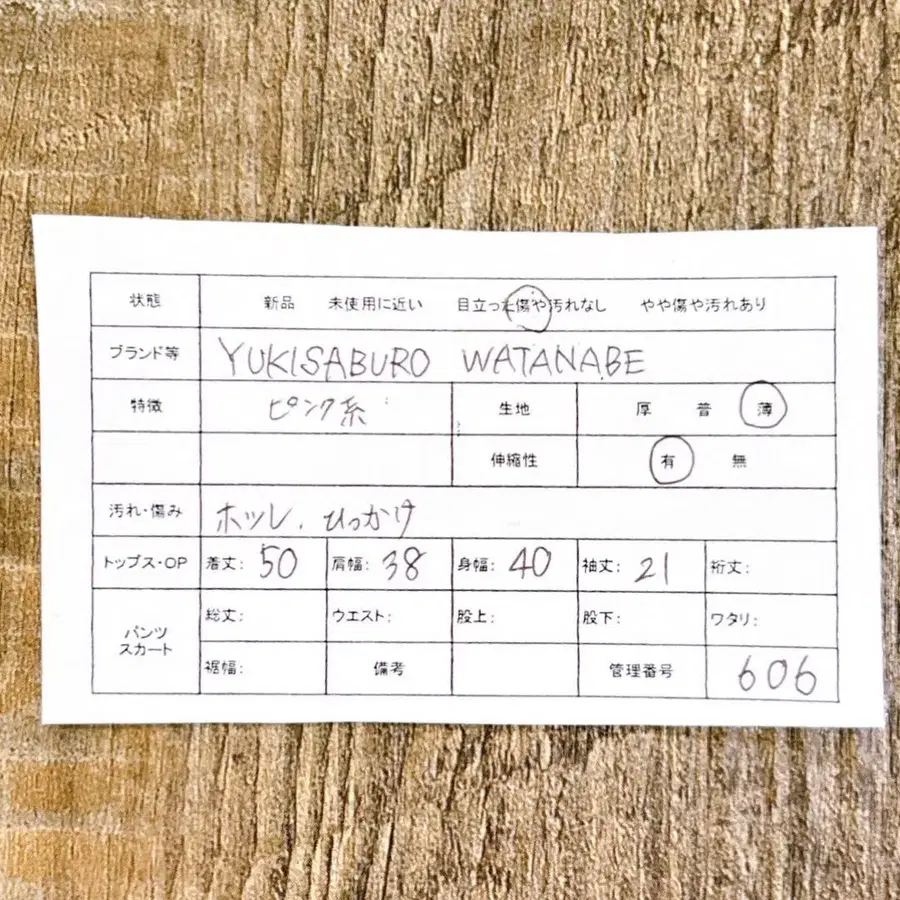 状態 新品 未使用に近い 目立った傷や汚れなし やや傷や汚れあり
ブランド等 YUKISABURO WATANABE
特徴 ピンク系 生地 厚 普 薄
伸縮性 有 無
汚れ・傷み ホツレ、ひっかけ
トップス・OP 着丈: 50 肩幅: 38 身幅: 40 袖丈: 21 裄丈:
パンツ スカート 総丈: ウエスト: 股上: 股下: ワタリ:
裾幅: 備考 管理番号 606